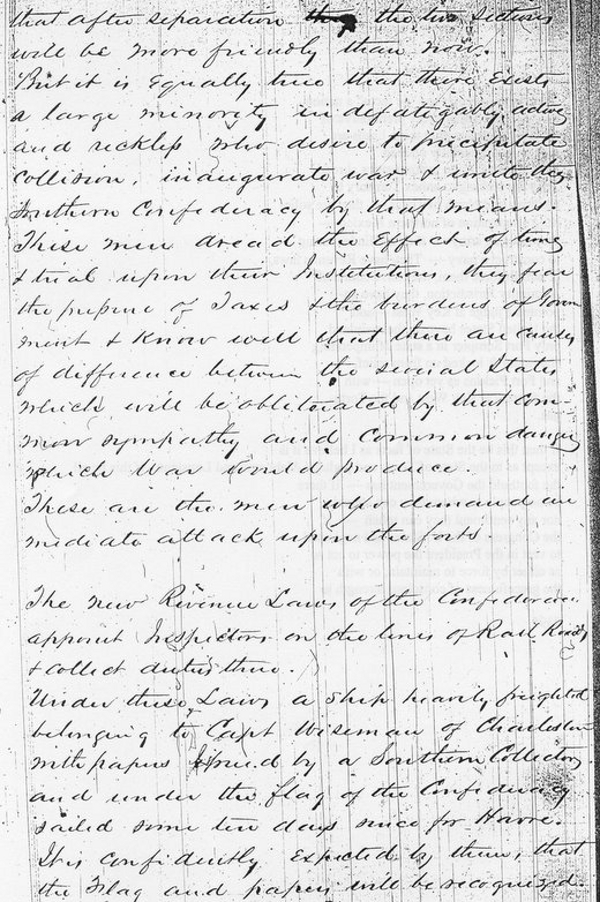 that after separation the two sections
will be more friendly than now.
But it is equally true that there exists
a large minority indefatigably active
and reckless who desire to precipitate
collision, inaugurate war & unite the
Southern Confederacy by that means.
These men dread the effect of time
& trial upon their Institutions, they fear
the pressure of Taxes & the burdens of Govern
ment & know well that there are causes
of difference between the several States
which will be obliterated by that com-
mon sympathy and common danger
which War would produce.
These are the men who demand im
mediate attack upon the forts.
The new Revenue Laws of the Confederacy
appoint Inspectors on the lines of Rail Roads
& collect duties there.
Under these Laws a Ship heavily freighted
belonging to Capt Wiseman of Charleston
with papers signed by a Southern Collector
and under the flag of the Confederacy
sailed some ten days since for Havre.
It is confidently expected by them, that
the Flag and papers will be recognized.